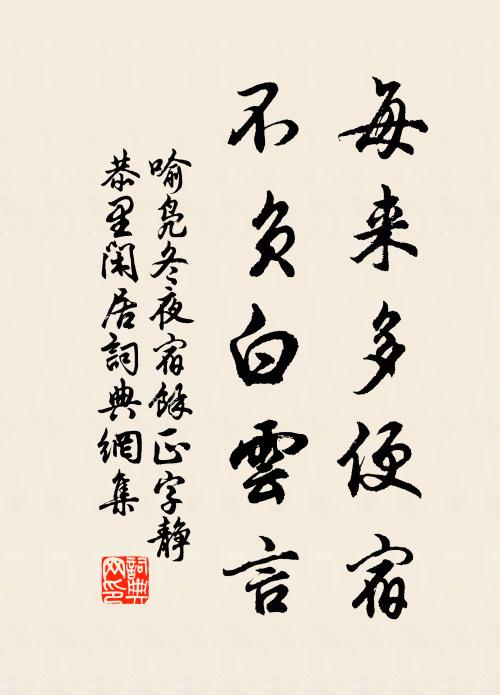 每来多便宿
不负白雲言
喻凫冬夜宿余正字静
恭里闲居詞典網集
詞典
网印